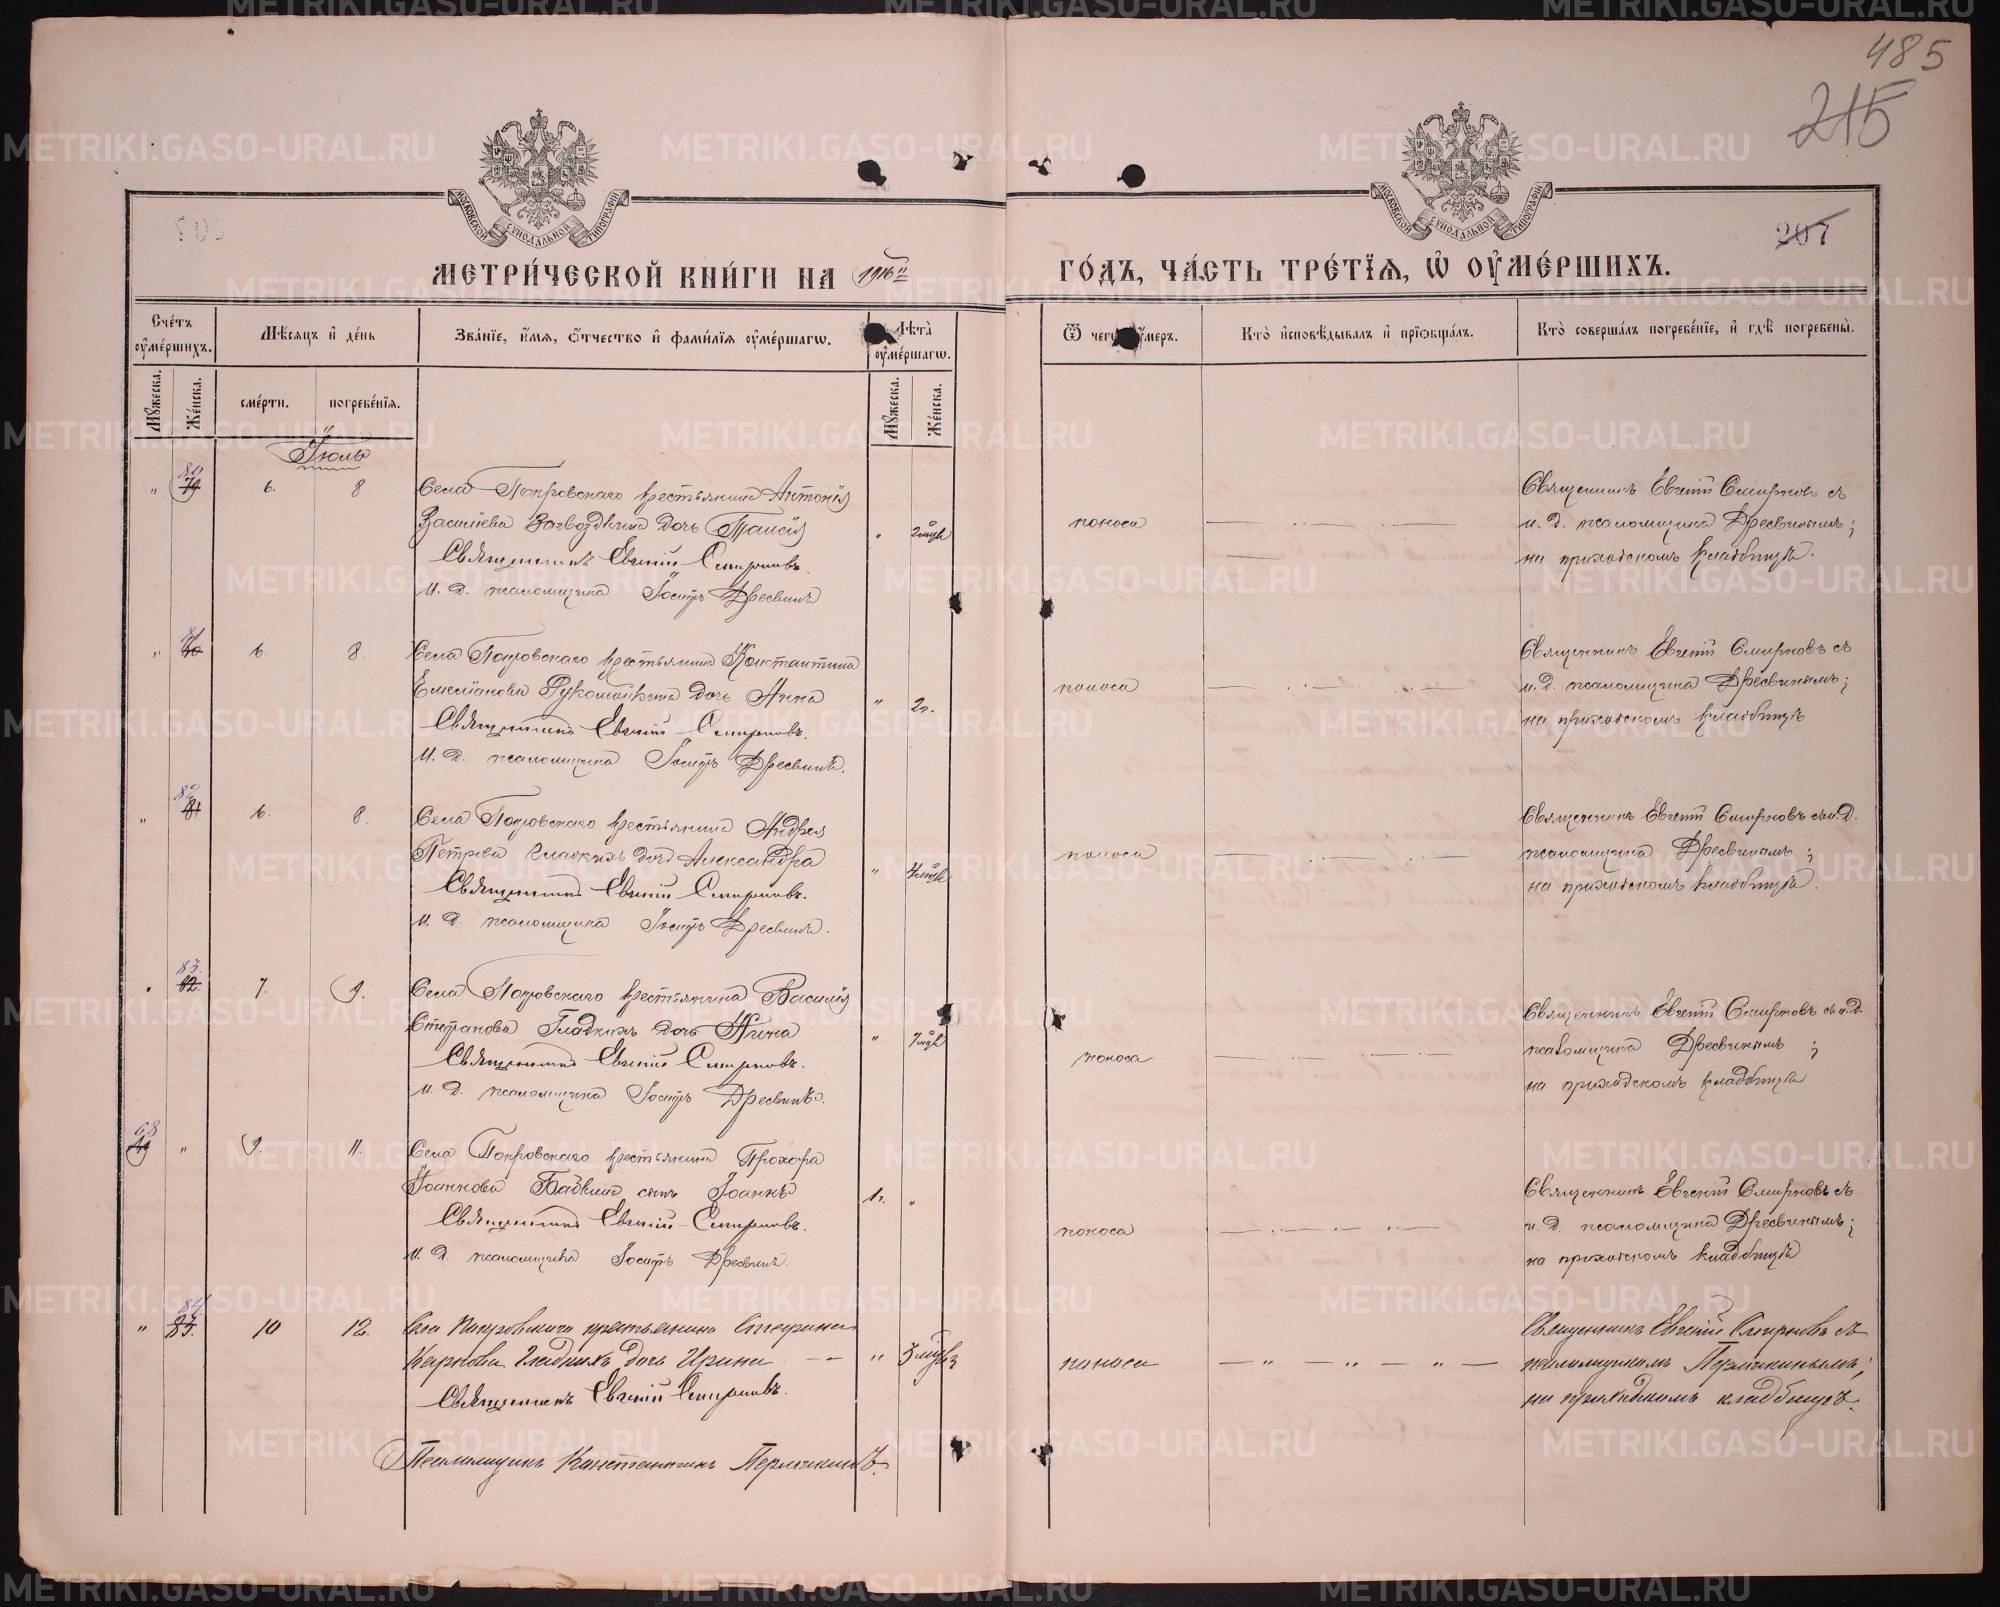 485
215
207
МОСКОВСКОЙ СУНОДАЛЬНОЙ ТИПОГРАФІИ
МОСКОВСКОЙ СУНОДАЛЬНОЙ ТИПОГРАФІИ
МЕТРИ́ЧЕСКОЙ КНИ́ГИ НА 1916 ГО́ДЪ, ЧА́СТЬ ТРЕ́ТІѦ, Ѡ ОУМЕ́РШИХЪ.
Сче́тъ оуме́ршихъ.
Мѣсѧцъ и де́нь
Зва́нїе, и́мѧ, ѻ́тчество и фами́лїѧ оуме́ршагѡ.
Лѣта̀ оуме́ршагѡ.
Ѿ чегѡ̀ оу́меръ.
Кто̀ исповѣ́дывалъ и прїѡбща́лъ.
Кто̀ соверша́лъ погребе́нїе, и гдѣ̀ погребены̀.
Мꙋжеска. Же́нска. сме́рти. погребе́нїѧ. Мꙋжеска. Же́нска.
Іюль
80
" 79 6. 8 Села Покровскаго крестьянина Антонія
Васильева Загвоздкина дочь Таисія " 2 мца
Священникъ Евгеній Смирновъ.
И. д. псаломщика Іосифъ Дресвинъ
поноса
Священникъ Евгеній Смирновъ съ
и. д. псаломщика Дресвинымъ;
на приходскомъ кладбищѣ.
81
" 80 6. 8. Села Покровскаго крестьянина Константина
Емеліанова Рукомойкина дочь Анна " 2 г.
Священникъ Евгеній Смирновъ.
И. д. псаломщика Іосифъ Дресвинъ.
поноса
Священникъ Евгеній Смирновъ съ
и. д. псаломщика Дресвинымъ;
на приходскомъ кладбищѣ
82
" 81. 6. 8. Села Покровскаго крестьянина Андрея
Петрова Гладкихъ дочь Александра "
Священникъ Евгеній Смирновъ.
И. д. псаломщика Іосифъ Дресвинъ.
поноса
Священникъ Евгеній Смирновъ съ и. д.
псаломщика Дресвинымъ;
на приходскомъ кладбищѣ.
83.
82. 7. 9. Села Покровскаго крестьянина Василія
Стефанова Гладкихъ дочь Нина "
Священникъ Евгеній Смирновъ.
И. д. псаломщика Іосифъ Дресвинъ.
поноса
Священникъ Евгеній Смирновъ съ и. д.
псаломщика Дресвинымъ;
на приходскомъ кладбищѣ
68
" 9. 11. Села Покровскаго крестьянина Прохора
Іоаннова сынъ Іоаннъ 1 г. "
Священникъ Евгеній Смирновъ.
И. д. псаломщика Іосифъ Дресвинъ.
поноса
Священникъ Евгеній Смирновъ съ
и. д. псаломщика Дресвинымъ;
на приходскомъ кладбищѣ
84
" 83. 10 12. Села Покровскаго крестьянина Стефана
Карпова Гладкихъ дочь Ирина "
Священникъ Евгеній Смирновъ.
Псаломщикъ Константинъ Пермякинъ.
поноса — " — " — " —
Священникъ Евгеній Смирновъ съ
псаломщикомъ Пермякинымъ;
на приходскомъ кладбищѣ.
METRIKI.GASO-URAL.RU